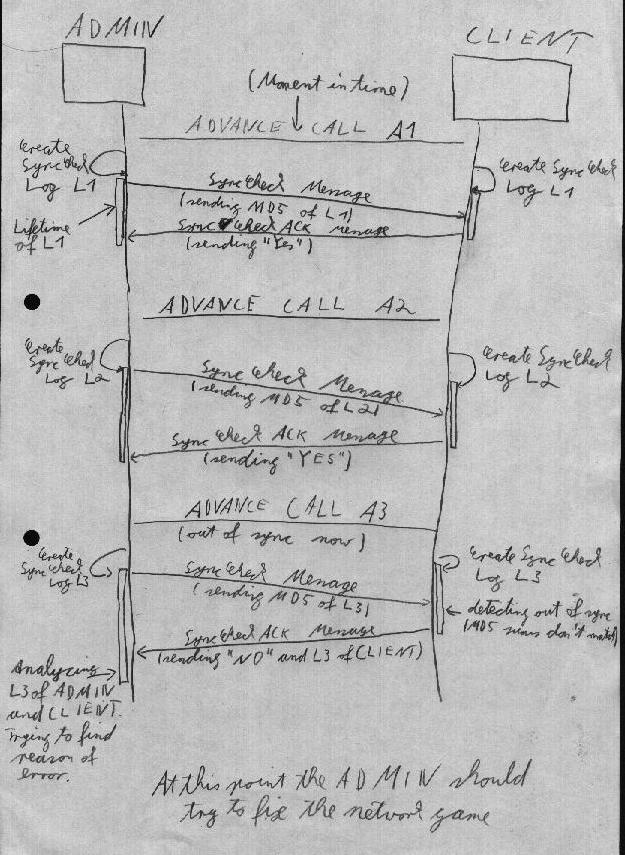 ADMIN
CLIENT
(Moment in time)
ADVANCE CALL A1
Create
Sync Check
Log L1
Create Sync Check
Log L1
Sync Check Message
(sending MD5 of L1)
Lifetime
of L1
Sync Check ACK Message
(sending "Yes")
ADVANCE CALL A2
Create
Sync Check
Log L2
Create Sync Check
Log L2
Sync Check Message
(sending MD5 of L2)
Sync Check ACK Message
(sending "YES")
ADVANCE CALL A3
(out of sync now)
Create
Sync Check
Log L3
Create Sync Check
Log L3
Sync Check Message
(sending MD5 of L3)
detecting out of sync
(MD5 sums don't match)
Sync Check ACK Message
(sending "NO" and L3 of CLIENT)
Analyzing
L3 of ADMIN
and CLIENT.
Trying to find
reason of
error.
At this point the ADMIN should
try to fix the network game